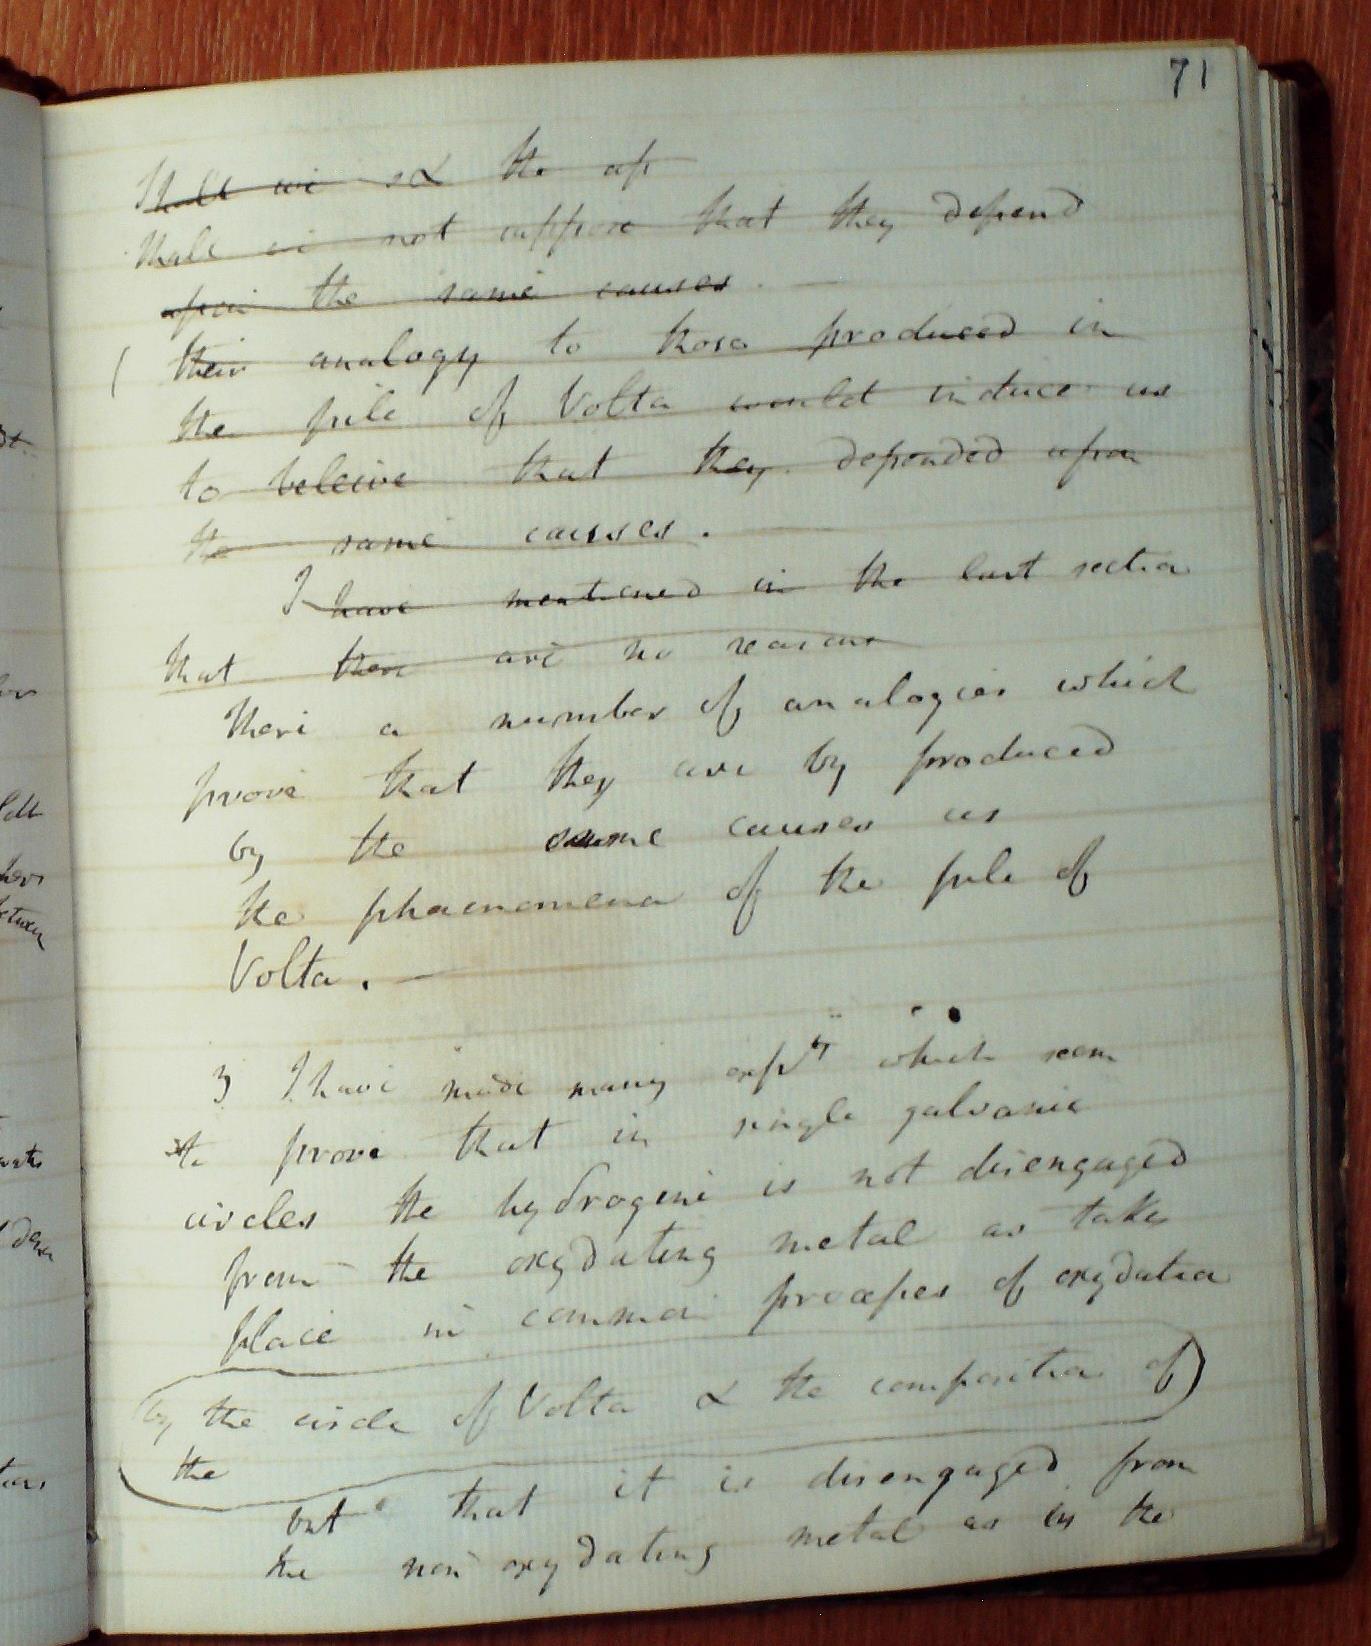 71
Shall we & the ap
shall we not suppose that they depend
upon the same causes. —
( their analogy to those produced in
the pile of Volta would induce us
to beleive that they depended upon
the same causes.
I have mentioned in the last section
that there are no reasons
there a number of analogies which
prove that they are by produced
by the same causes as
the phaenomena of the pile of
Volta. —
3 I have made many expts which seem
to prove that in single galvanic
circles the hydrogene is not disengaged
from the oxydating metal as takes
place in common processes of oxydation
by the circle of Volta & the composition of
the
but that it is disengaged from
the non oxydating metal as in the